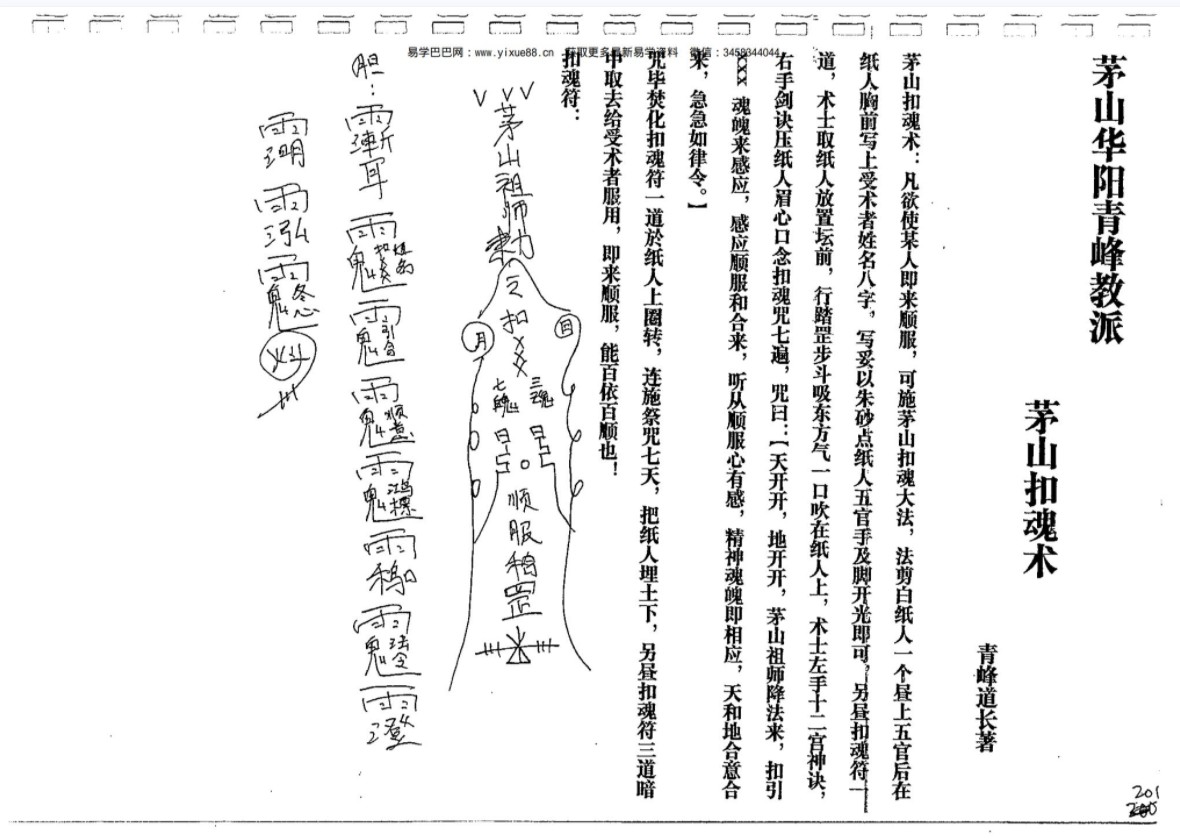 易学巴巴网：www.yixue88.cn 获取更多最新易学资料 微信：3458344044
茅山华阳青峰教派
茅山扣魂术
青峰道长著
茅山扣魂术：凡欲使某人即来顺服，可施茅山扣魂大法，法剪白纸人一个昼上五官后在
纸人胸前写上受术者姓名八字，写妥以朱砂点纸人五官手及脚开光即可，另昼扣魂符一
道，术士取纸人放置坛前，行踏罡步斗吸东方气一口吹在纸人上，术士左手十二宫神诀，
右手剑诀压纸人眉心口念扣魂咒七遍，咒曰：【天开开，地开开，茅山祖师降法来，扣引
XXX 魂魄来感应，感应顺服和合来，听从顺服心有感，精神魂魄即相应，天和地合意合
来，急急如律令。】
咒毕焚化扣魂符一道於纸人上圈转，连施祭咒七天，把纸人埋土下，另昼扣魂符三道暗
中取去给受术者服用，即来顺服，能百依百顺也！
扣魂符：
茅山祖师勅
令扣XX
日
月
三魂
七魄
顺服
罡
胆：
201